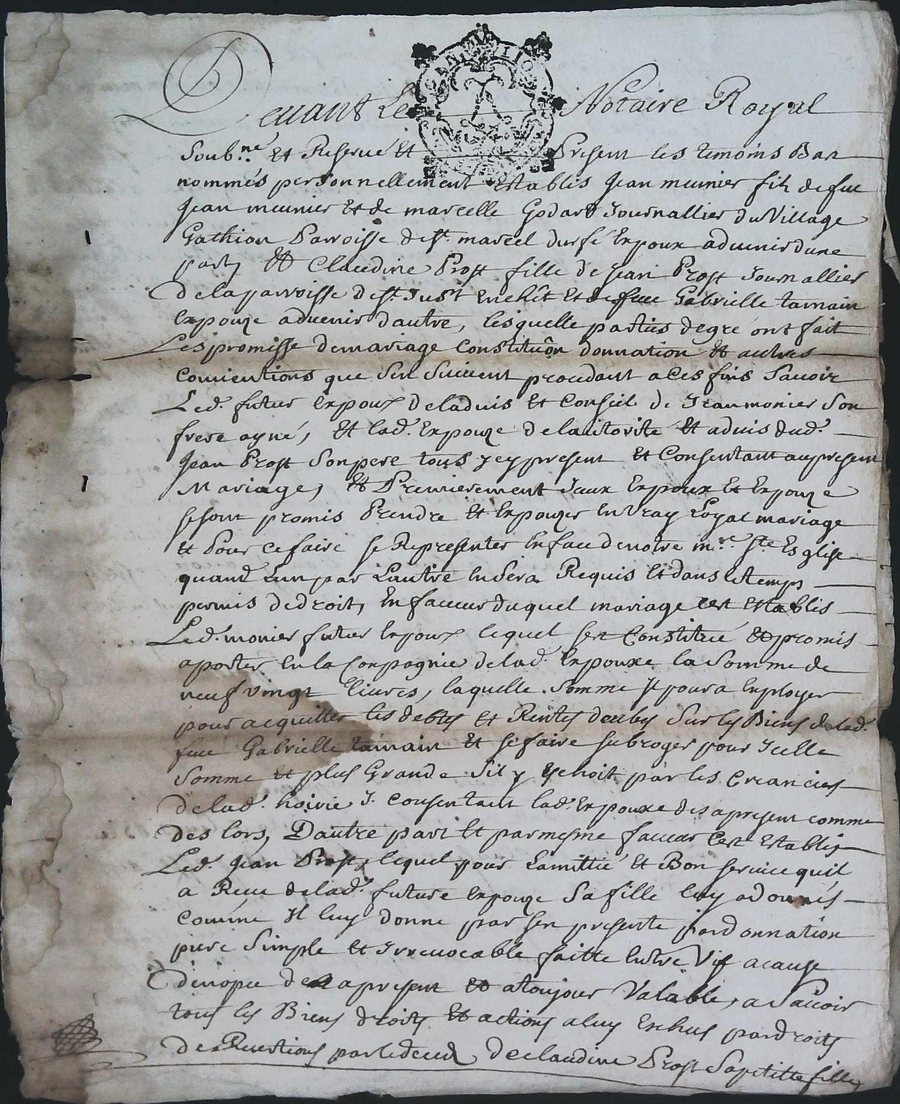 Devant Le Notaire Royal
Soub.né Et Reservé Et Present les temoins Bas
nommés personnellement Establis Jean meunier filz de fue
Jean meunier Et de marcelle Godard Journallier du Village
Gathion Parroisse de st. marcel durfé Expoux aduenir dune
part, Et Claudine Prost fille de Jean Prost Journallier
de la parroisse de st Just Et de fue Gabrielle tamain
Expouze aduenir dautre, lesquelle parties de gré ont fait
Les promisse de mariage Constitution donnation Et autres
Conuentions que sen suiuent procedant a Ces fins Sauoir
Led. futur Expoux de laduis Et Conseil de Jean monier Son
frere ayné, Et lad. Expouze de lautorité Et aduis dud.
Jean Prost Son pere tous y cy present Et Consentant au present
Mariage, Et Premierement Iceux Expoux Et Expouze
se sont promis Prendre Et Expouzer En Vray Loyal mariage
Et Pour Ce faire se Representer En face de notre m.re Ste Esglise
quand Lun par Lautre En Sera Requis Et dans le temps
permis de droit, En faueur duquel mariage Cest Establis
Led. monier futur Expoux lequel sest Constitué Et promis
aporter En la Conpagnie de lad. Expouze la Somme de
neuf vingt Liures, laquelle Somme Il poura Employer
pour acquitter les debtes Et Rentes deubes Sur les Biens de lad.
fue Gabrielle tamain Et se faire subroger pour Icelle
Somme Et plus Grande Sil y Echoit par les Creanciers
de lad. hoirie y Consentant lad. Expouze des a present comme
des lors, Dautre part Et par mesme faueur Cest Establis
Led. Jean Prost, lequel pour Lamittié Et Bon seruice quil
a Receu de lad. future Expouze Sa fille luy a donnés
comme Il luy donne par Ses presente par donnation
pure Simple Et Irreuocable faitte Entre Vif a cause
de nopce des a present Et a toujour Valable, a Sauoir
tous les Biens droits Et actions a luy Escheus par droits
de Reuertions par le deced de Claudine Prost Sa petitte fille